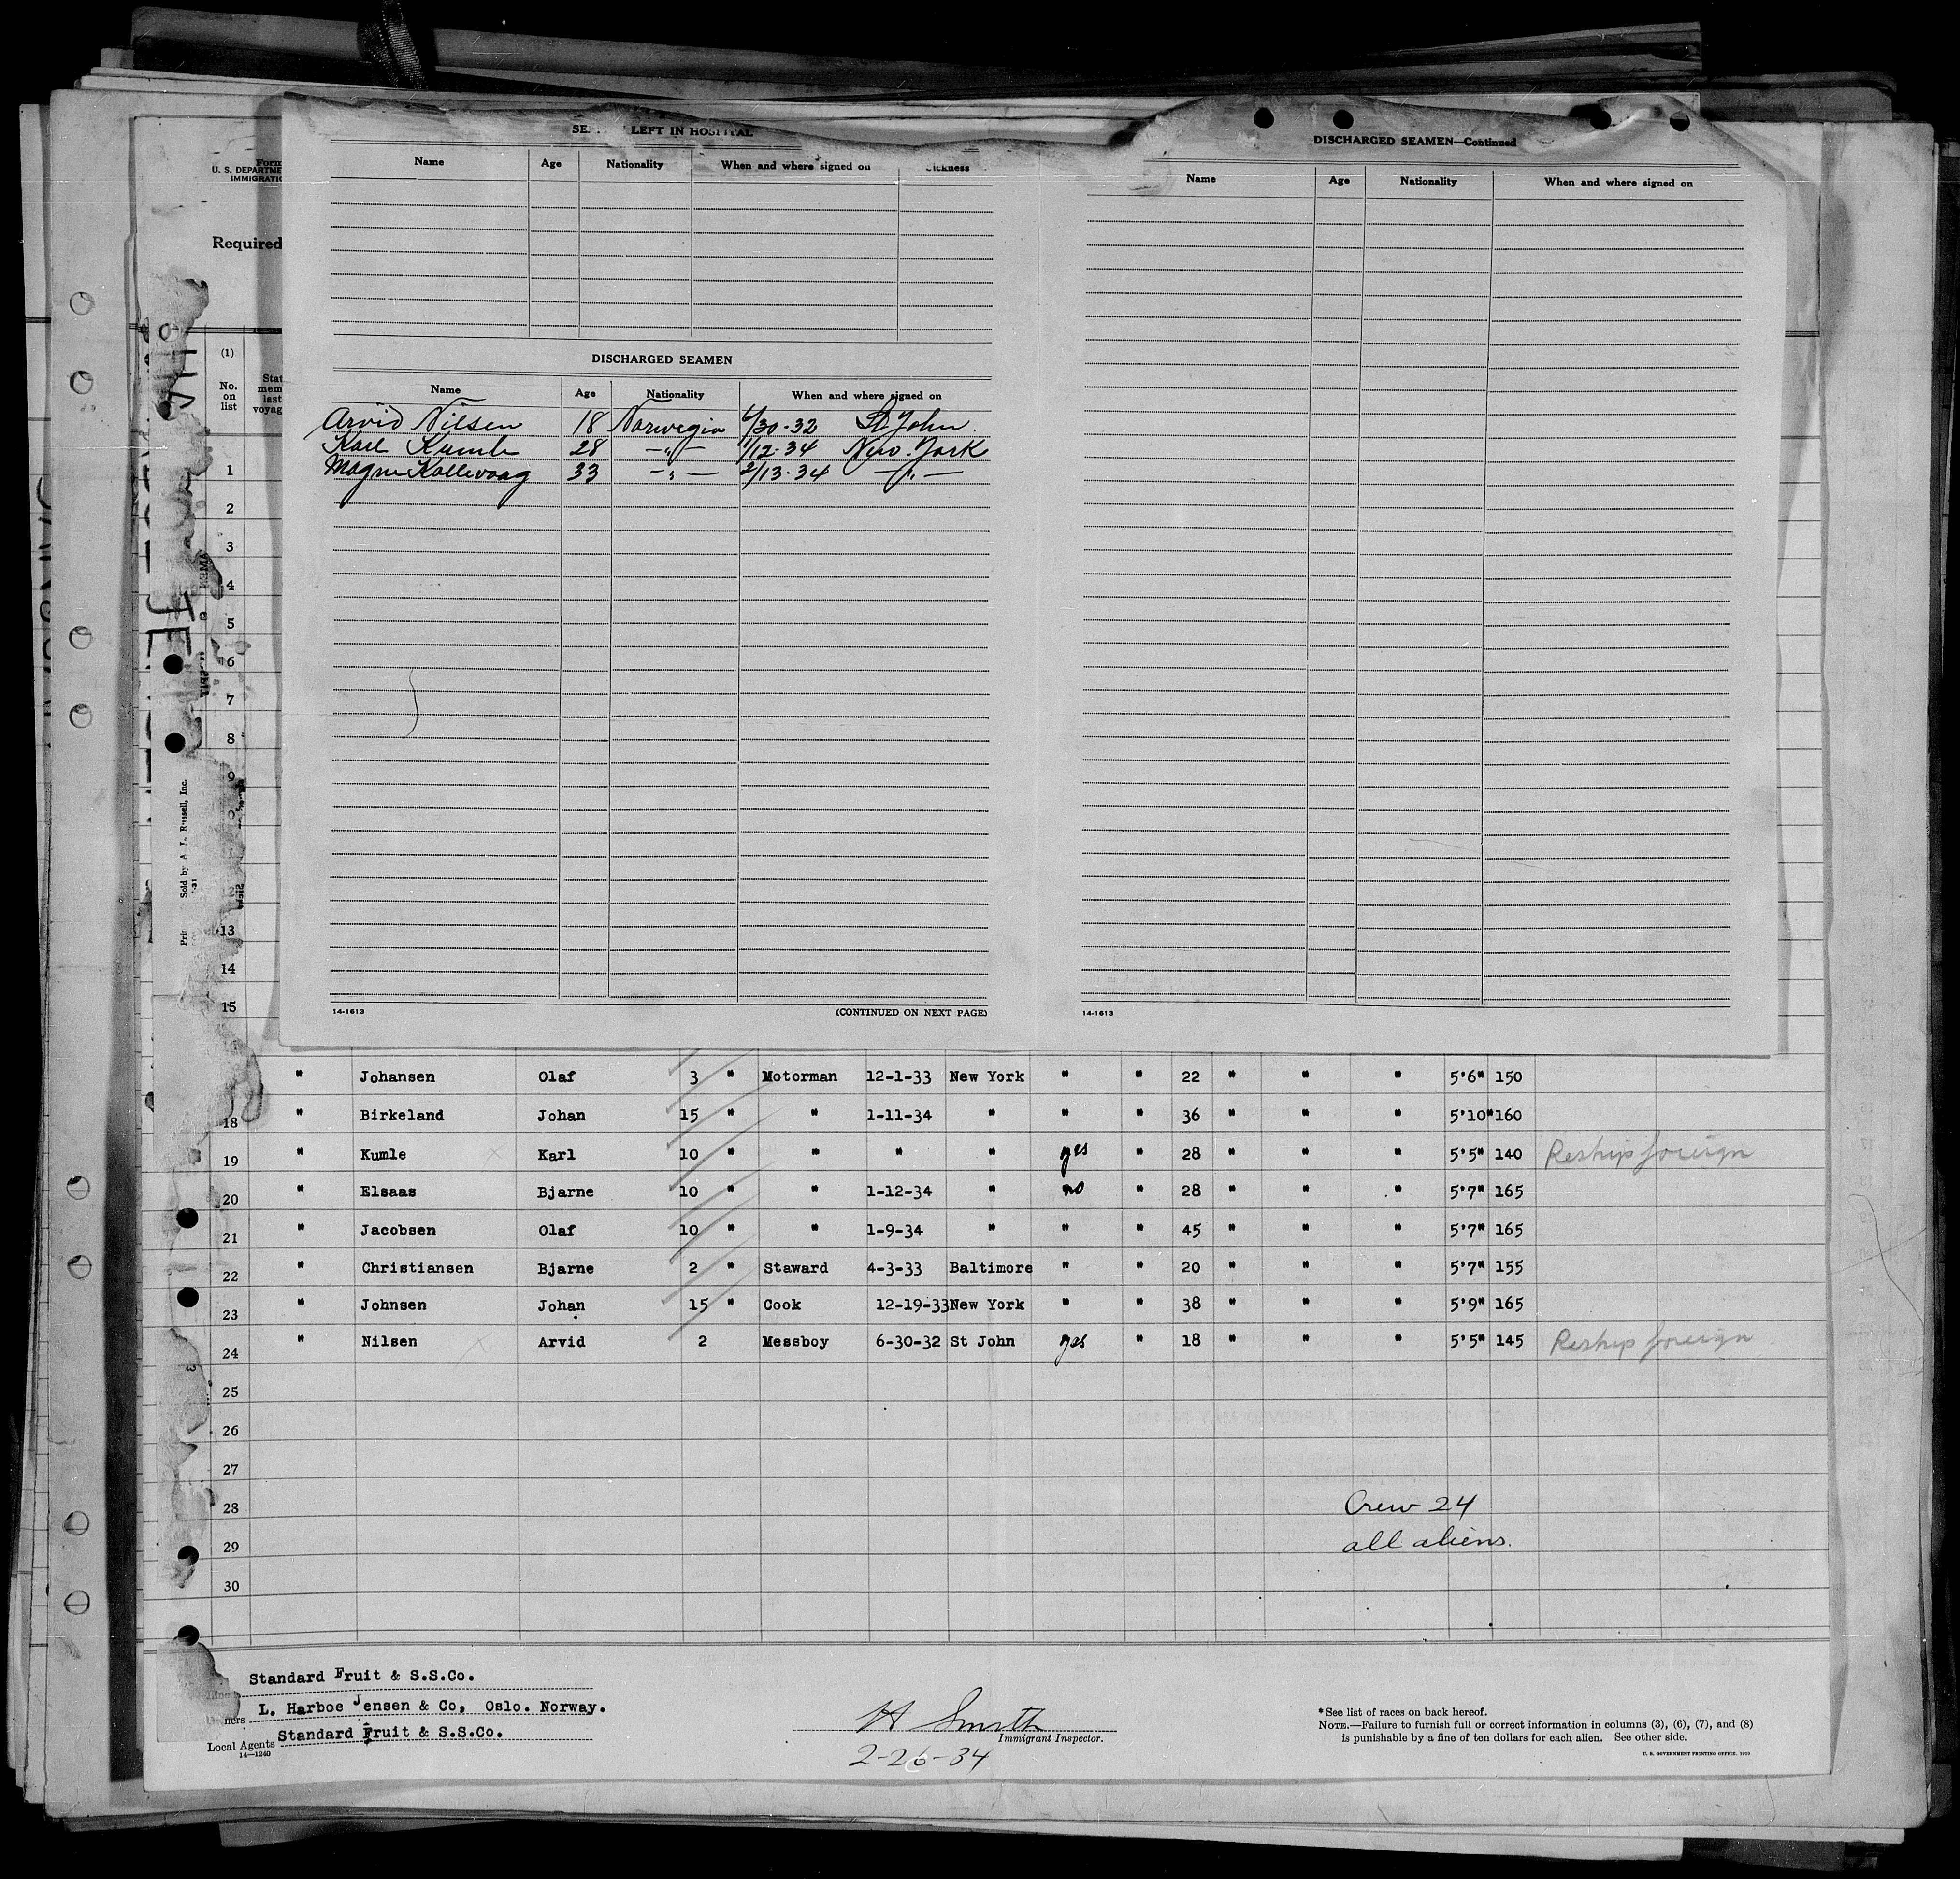 LEFT IN HOSPITAL
Name Age Nationality When and where signed on Sickness
DISCHARGED SEAMEN
Name Age Nationality When and where signed on
Arvid Nilsen 18 Norwegia 6/30-32 St John.
Karl Kumle 28 -"- 1/12-34 New-York
Magne Kallevaag 33 -"- 2/13-34 -"-
14-1613 (CONTINUED ON NEXT PAGE)
DISCHARGED SEAMEN—Continued
Name Age Nationality When and where signed on
14-1613
Form
U. S. DEPARTME
IMMIGRATIO
Required
(1)
No.
on
list
Stat
mem
last
voyag
1
2
3
4
5
6
7
8
9
13
14
15
Sold by A. L. Russell, Inc.
" Johansen Olaf 3 " Motorman 12-1-33 New York " " 22 " " " 5'6" 150
18 " Birkeland Johan 15 " " 1-11-34 " " " 36 " " " 5'10" 160
19 " Kumle Karl 10 " " " " yes " 28 " " " 5'5" 140 Reship foreign
20 " Elsaas Bjarne 10 " " 1-12-34 " no " 28 " " " 5'7" 165
21 " Jacobsen Olaf 10 " " 1-9-34 " " " 45 " " " 5'7" 165
22 " Christiansen Bjarne 2 " Staward 4-3-33 Baltimore " " 20 " " " 5'7" 155
23 " Johnsen Johan 15 " Cook 12-19-33 New York " " 38 " " " 5'9" 165
24 " Nilsen Arvid 2 Messboy 6-30-32 St John yes " 18 " " " 5'5" 145 Reship foreign
25
26
27
28 Crew 24
29 all aliens.
30
Standard Fruit & S.S.Co.
L. Harboe Jensen & Co, Oslo. Norway.
Local Agents Standard Fruit & S.S.Co.
14—1240
H Smith
Immigrant Inspector.
2-26-34
*See list of races on back hereof.
NOTE.—Failure to furnish full or correct information in columns (3), (6), (7), and (8)
is punishable by a fine of ten dollars for each alien. See other side.